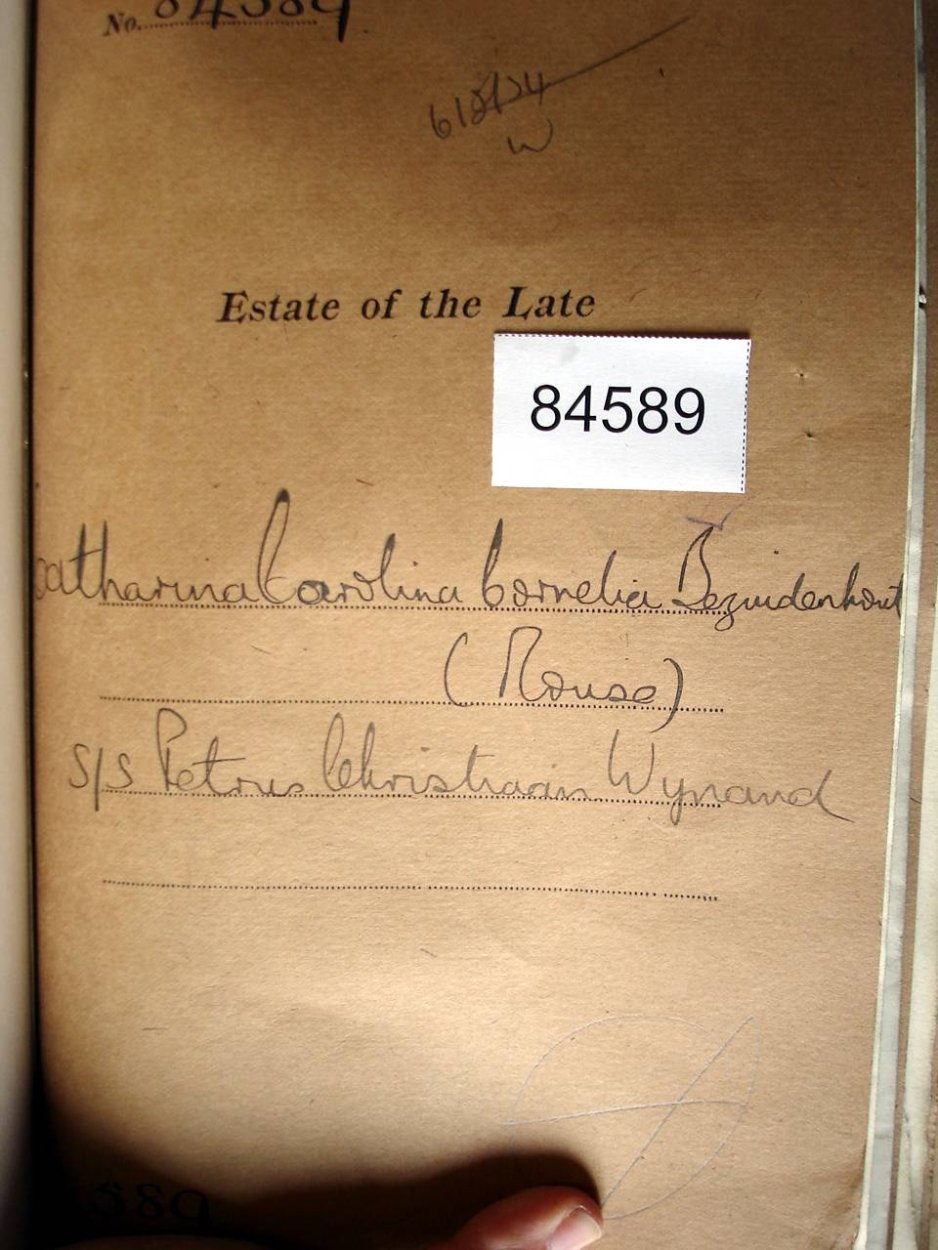 No. 84589
Estate of the Late
84589
Catharina Carolina Cornelia Bezuidenhout
(Rouse)
s/s Petrus Christiaan Wynand